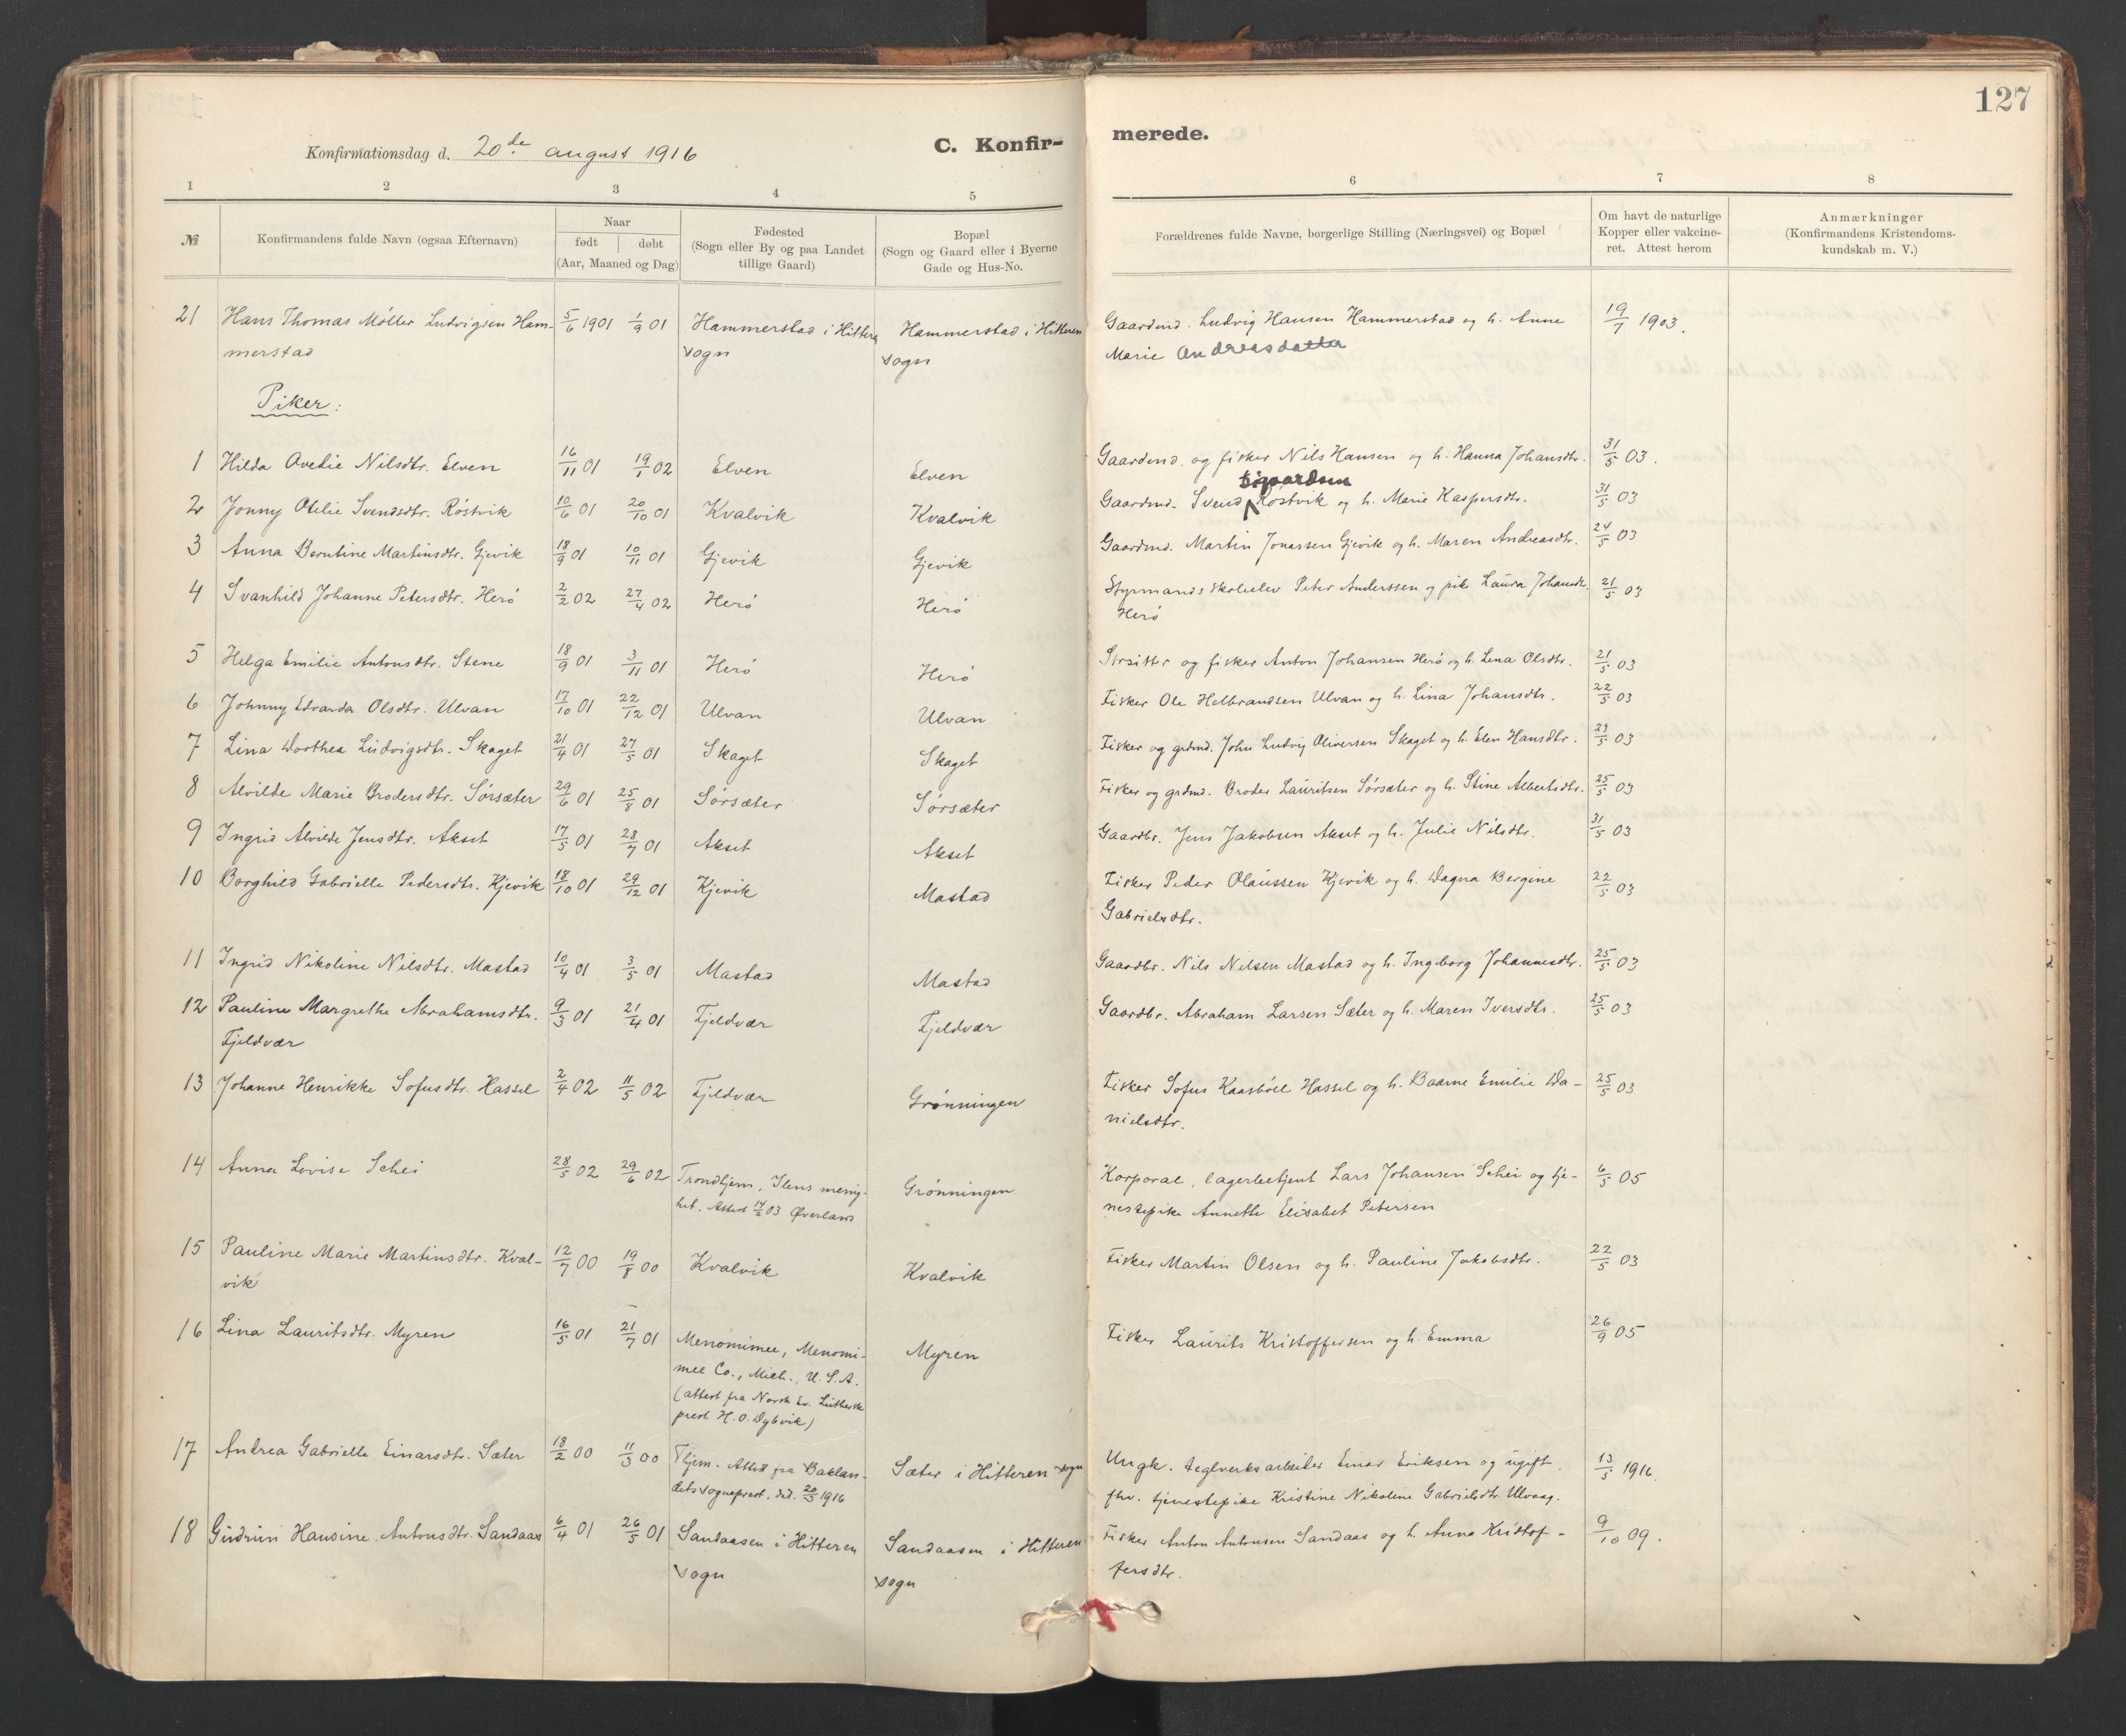 127
Konfirmationsdag d. 20de august 1916
C. Konfir-
merede.
1 2 3 4 5 6 7 8
№
Konfirmandens fulde Navn (ogsaa Efternavn)
Naar
født døbt
(Aar, Maaned og Dag)
Fødested
(Sogn eller By og paa Landet
tillige Gaard)
Bopæl
(Sogn og Gaard eller i Byerne
Gade og Hus-No.
Forældrenes fulde Navne, borgerlige Stilling (Næringsvei) og Bopæl
Om havt de naturlige
Kopper eller vakcine-
ret. Attest herom
Anmærkninger
(Konfirmandens Kristendoms-
kundskab m. V.)
21 Hans Thomas Möller Ludvigsen Ham- 5/6 1901 1/9 01 Hammerstad i Hitteren Hammerstad i Hitteren Gaardmd. Ludvig Hansen Hammerstad og h. Anne 19/7 1903.
merstad sogn sogn Marie Andreasdatter
Piker:
1 Hilda Ovedie Nilsdtr. Elven 16/11 01 19/1 02 Elven Elven Gaardmd. og fisker Nils Hansen og h. Hanna Johansdtr. 31/5 03.
Sigvardsen
2 Jonny Otilie Svendsdtr. Röstvik 10/6 01 20/10 01 Kvalvik Kvalvik Gaardmd. Svend Röstvik og h. Marie Kaspersdtr. 31/5 03
3 Anna Berntine Martinsdtr. Gjevik 18/9 01 10/11 01 Gjevik Gjevik Gaardmd. Martin Jonassen Gjevik og h. Maren Andreasdtr. 24/5 03
4 Svanhild Johanne Petersdtr. Herö 2/2 02 27/4 02 Herö Herö Styrmandsskoleelev Peter Anderssen og pike Laura Johansdtr. 21/5 03
Herö
5 Helga Emilie Antonsdtr. Stene 18/9 01 3/11 01 Herö Herö Strsitter og fisker Anton Johansen Herö og h. Lena Olsdtr. 21/5 03
6 Johnny Edvarda Olsdtr. Ulvan 17/10 01 22/12 01 Ulvan Ulvan Fisker Ole Helbrandsen Ulvan og h. Lina Johansdtr. 22/5 03
7 Lina Dorthea Ludvigsdtr. Skaget 21/4 01 27/5 01 Skaget Skaget Fisker og grdmd. John Ludvig Oliversen Skaget og h. Elen Hansdtr. 23/5 03
8 Alvilde Marie Brodersdtr. Sörsæter 29/6 01 25/8 01 Sörsæter Sörsæter Fisker og grdmd. Broder Lauritsen Sörsæter og h. Stine Albertsdtr. 25/5 03
9 Ingrid Alvilde Jensdtr. Akset 17/5 01 28/7 01 Akset Akset Gaardbr. Jens Jakobsen Akset og h. Julie Nilsdtr. 31/5 03
10 Borghild Gabrielle Pedersdtr. Kjevik 18/10 01 29/12 01 Kjevik Mastad Fisker Peder Olaussen Kjevik og h. Dagna Bergine 22/5 03
Gabrielsdtr.
11 Ingrid Nikoline Nilsdtr. Mastad 10/4 01 3/5 01 Mastad Mastad Gaardbr. Nils Nilsen Mastad og h. Ingeborg Johannesdtr. 25/5 03
12 Pauline Margrethe Abrahamsdtr. 9/3 01 21/4 01 Fjeldvær Fjeldvær Gaardbr. Abraham Larsen Sæter og h. Maren Iversdtr. 25/5 03
Fjeldvær
13 Johanne Henrikke Sofusdtr. Hassel 2/4 02 11/5 02 Fjeldvær Grönningen Fisker Sofus Kaasböll Hassel og h. Baarne Emilie Da- 25/5 03
nielsdtr.
14 Anna Lovise Schei 28/5 02 29/6 02 Trondhjem, Ilens menig- Grönningen Korporal, lagerbetjent Lars Johansen Schei og tje- 6/5 05
het. Attest 14/2 03 Øverland nestepike Annette Elisabet Petersen
15 Pauline Marie Martinsdtr. Kval- 12/7 00 19/8 00 Kvalvik Kvalvik Fisker Martin Olsen og h. Pauline Jakobsdtr. 22/5 03
vik
16 Lina Lauritsdtr. Myren 16/5 01 21/7 01 Menomimee, Menomi- Myren Fisker Laurits Kristoffersen og h. Emma 26/9 05
mee Co., Mich., U.S.A.
(attest fra Norsk Ev. Luthersk
prest H.O. Dybvik)
17 Andrea Gabrielle Einarsdtr. Sæter 18/2 00 11/3 00 Thjem. Attest fra Baklan- Sæter i Hitteren sogn Ungk. teglverksarbeider Einar Eriksen og ugift. 13/5 1916.
dets sogneprest, dat. 20/3 1916 fhv. tjenestepike Kristine Nikoline Gabrielsdtr. Ulvaag.
18 Gudrun Hansine Antonsdtr. Sandaas 6/4 01 26/5 01 Sandaasen i Hitteren Sandaasen i Hitteren Fisker Anton Antonsen Sandaas og h. Anna Kristof- 9/10 09.
sogn sogn fersdtr.